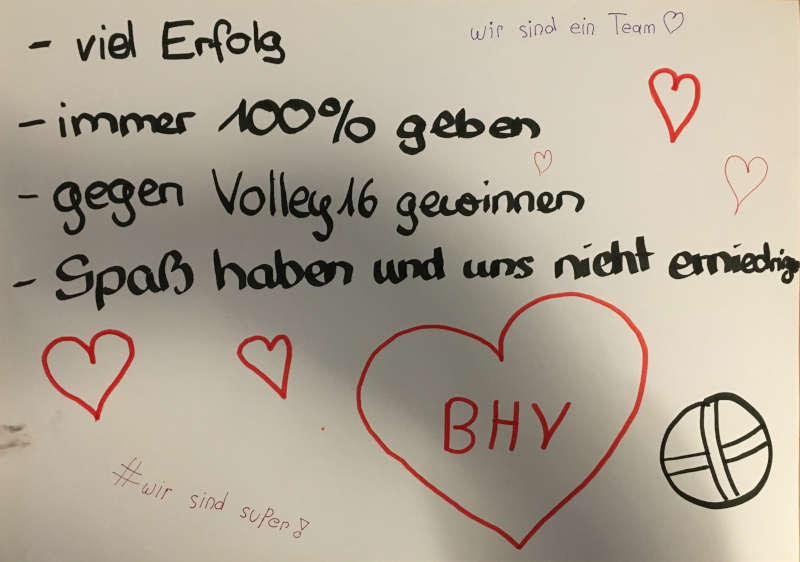 - viel Erfolg
wir sind ein Team
- immer 100% geben
- gegen Volley16 gewinnen
- Spaß haben und uns nicht erniedrige
BHV
#wir sind super!